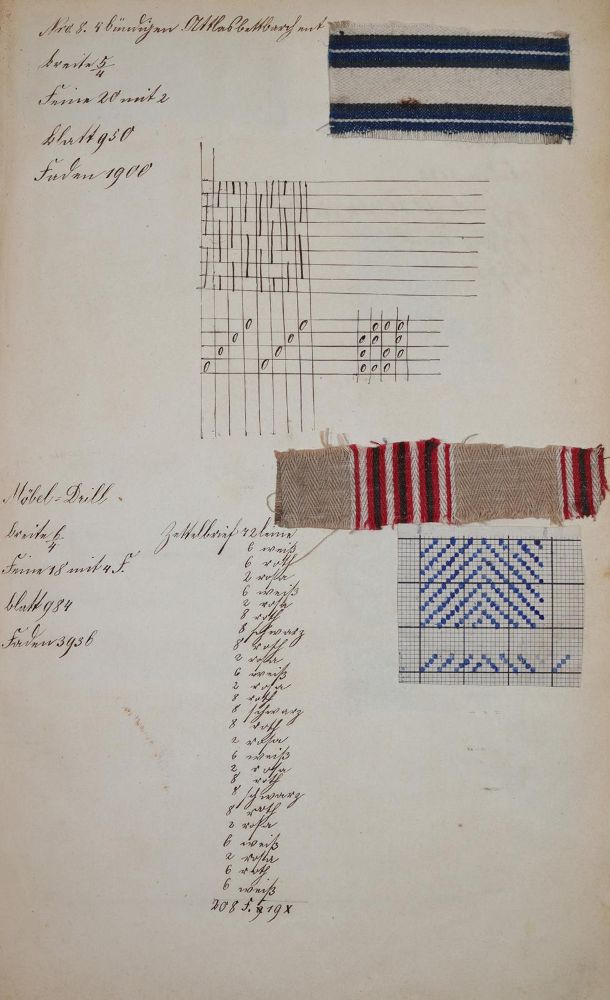 Nro 8. 4 bündigen Attlasbettbarchent
breite 5/4
Feine 20 mit 2
blatt 950
Faden 1900
Möbel=Drill
breite 6/4
Feine 18 mit 4 F.
blatt 984
Faden 3936
Zettelbrief 42 leine
6 weiß
6 roth
2 rosa
6 weiß
2 rosa
8 roth
8 schwarz
8 roth
2 rosa
6 weiß
2 rosa
8 roth
8 schwarz
8 roth
2 rosa
6 weiß
2 rosa
8 roth
8 schwarz
8 roth
2 rosa
6 weiß
2 rosa
6 roth
6 weiß
208 F. 19 x